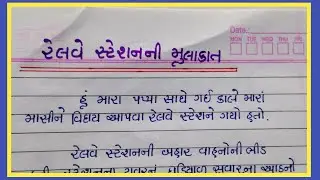 Date:
MON TUE WED THU FRI SAT
રેલવે સ્ટેશનની મુલાકાત
હું મારા પપ્પા સાથે ગઈ કાલે મારાં
માસીને વિદાય આપવા રેલવે સ્ટેશને ગયો હતો.
રેલવે સ્ટેશનની બહાર વાહનોની ભીડ
હતી. સ્ટેશનના